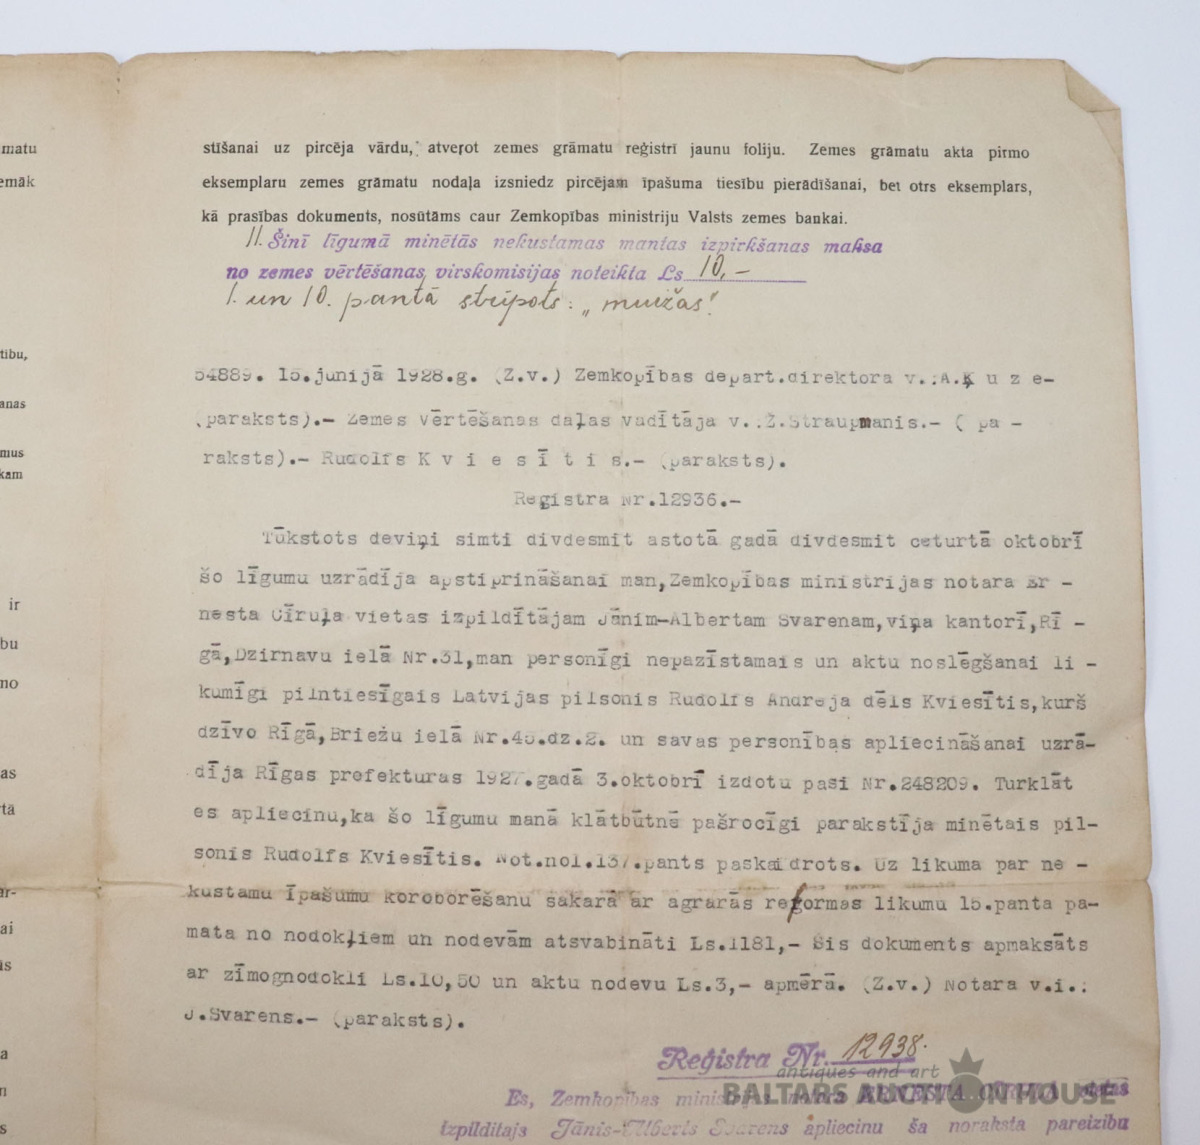 matu
emāk
tību,
anas
mus
kam
ir
bu
no
as
tā
ar-
ai
is
a
n
s
stīšanai uz pircēja vārdu, atveŗot zemes grāmatu reģistrī jaunu foliju. Zemes grāmatu akta pirmo
eksemplaru zemes grāmatu nodaļa izsniedz pircējam īpašuma tiesību pierādīšanai, bet otrs eksemplars,
kā prasības dokuments, nosūtāms caur Zemkopības ministriju Valsts zemes bankai.
11. Šinī līgumā minētās nekustamas mantas izpirkšanas maksa
no zemes vērtēšanas virskomisijas noteikta Ls 10,-
1. un 10. pantā strīpots: „muižas".
54889. 15.junijā 1928.g. (Z.v.) Zemkopības depart.direktora v.:A.Ķ u z e-
(paraksts).- Zemes vērtēšanas daļas vadītāja v.:Ž.Straupmanis.- ( pa -
raksts).- Rudolfs K v i e s ī t i s.- (paraksts).
Reģistra Nr.12936.-
Tūkstots deviņi simti divdesmit astotā gadā divdesmit ceturtā oktobrī
šo līgumu uzrādīja apstiprināšanai man,Zemkopības ministrijas notara Er -
nesta Cīruļa vietas izpildītājam Jānim-Albertam Svarenam,viņa kantorī,Rī -
gā,Dzirnavu ielā Nr.31,man personīgi nepazīstamais un aktu noslēgšanai li -
kumīgi pilntiesīgais Latvijas pilsonis Rudolfs Andreja dēls Kviesītis,kurš
dzīvo Rīgā,Briežu ielā Nr.45.dz.2. un savas personības apliecināšanai uzrā-
dīja Rīgas prefekturas 1927.gadā 3.oktobrī izdotu pasi Nr.248209. Turklāt
es apliecinu,ka šo līgumu manā klātbūtnē pašrocīgi parakstīja minētais pil-
sonis Rudolfs Kviesītis. Not.nol.137.pants paskaidrots. Uz likuma par ne -
kustamu īpašumu koroborēšanu sakarā ar agrarās reformas likumu 15.panta pa-
mata no nodokļiem un nodevām atsvabināti Ls.1181,- Šis dokuments apmaksāts
ar zīmognodokli Ls.10,50 un aktu nodevu Ls.3,- apmērā. (Z.v.) Notara v.i.:
J.Svarens.- (paraksts).
Reģistra Nr. 12938.
antiques and art
BALTARS AUCTION HOUSE
Es, Zemkopības ministrijas notara ERNESTA CĪRUĻA vietas
izpildītajs Jānis-Alberts Svarens apliecinu ša noraksta pareizību